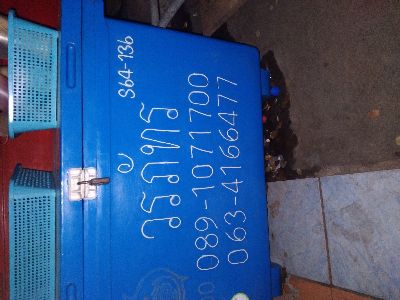 S64-136
วรภัทร
089-1071700
063-4166477